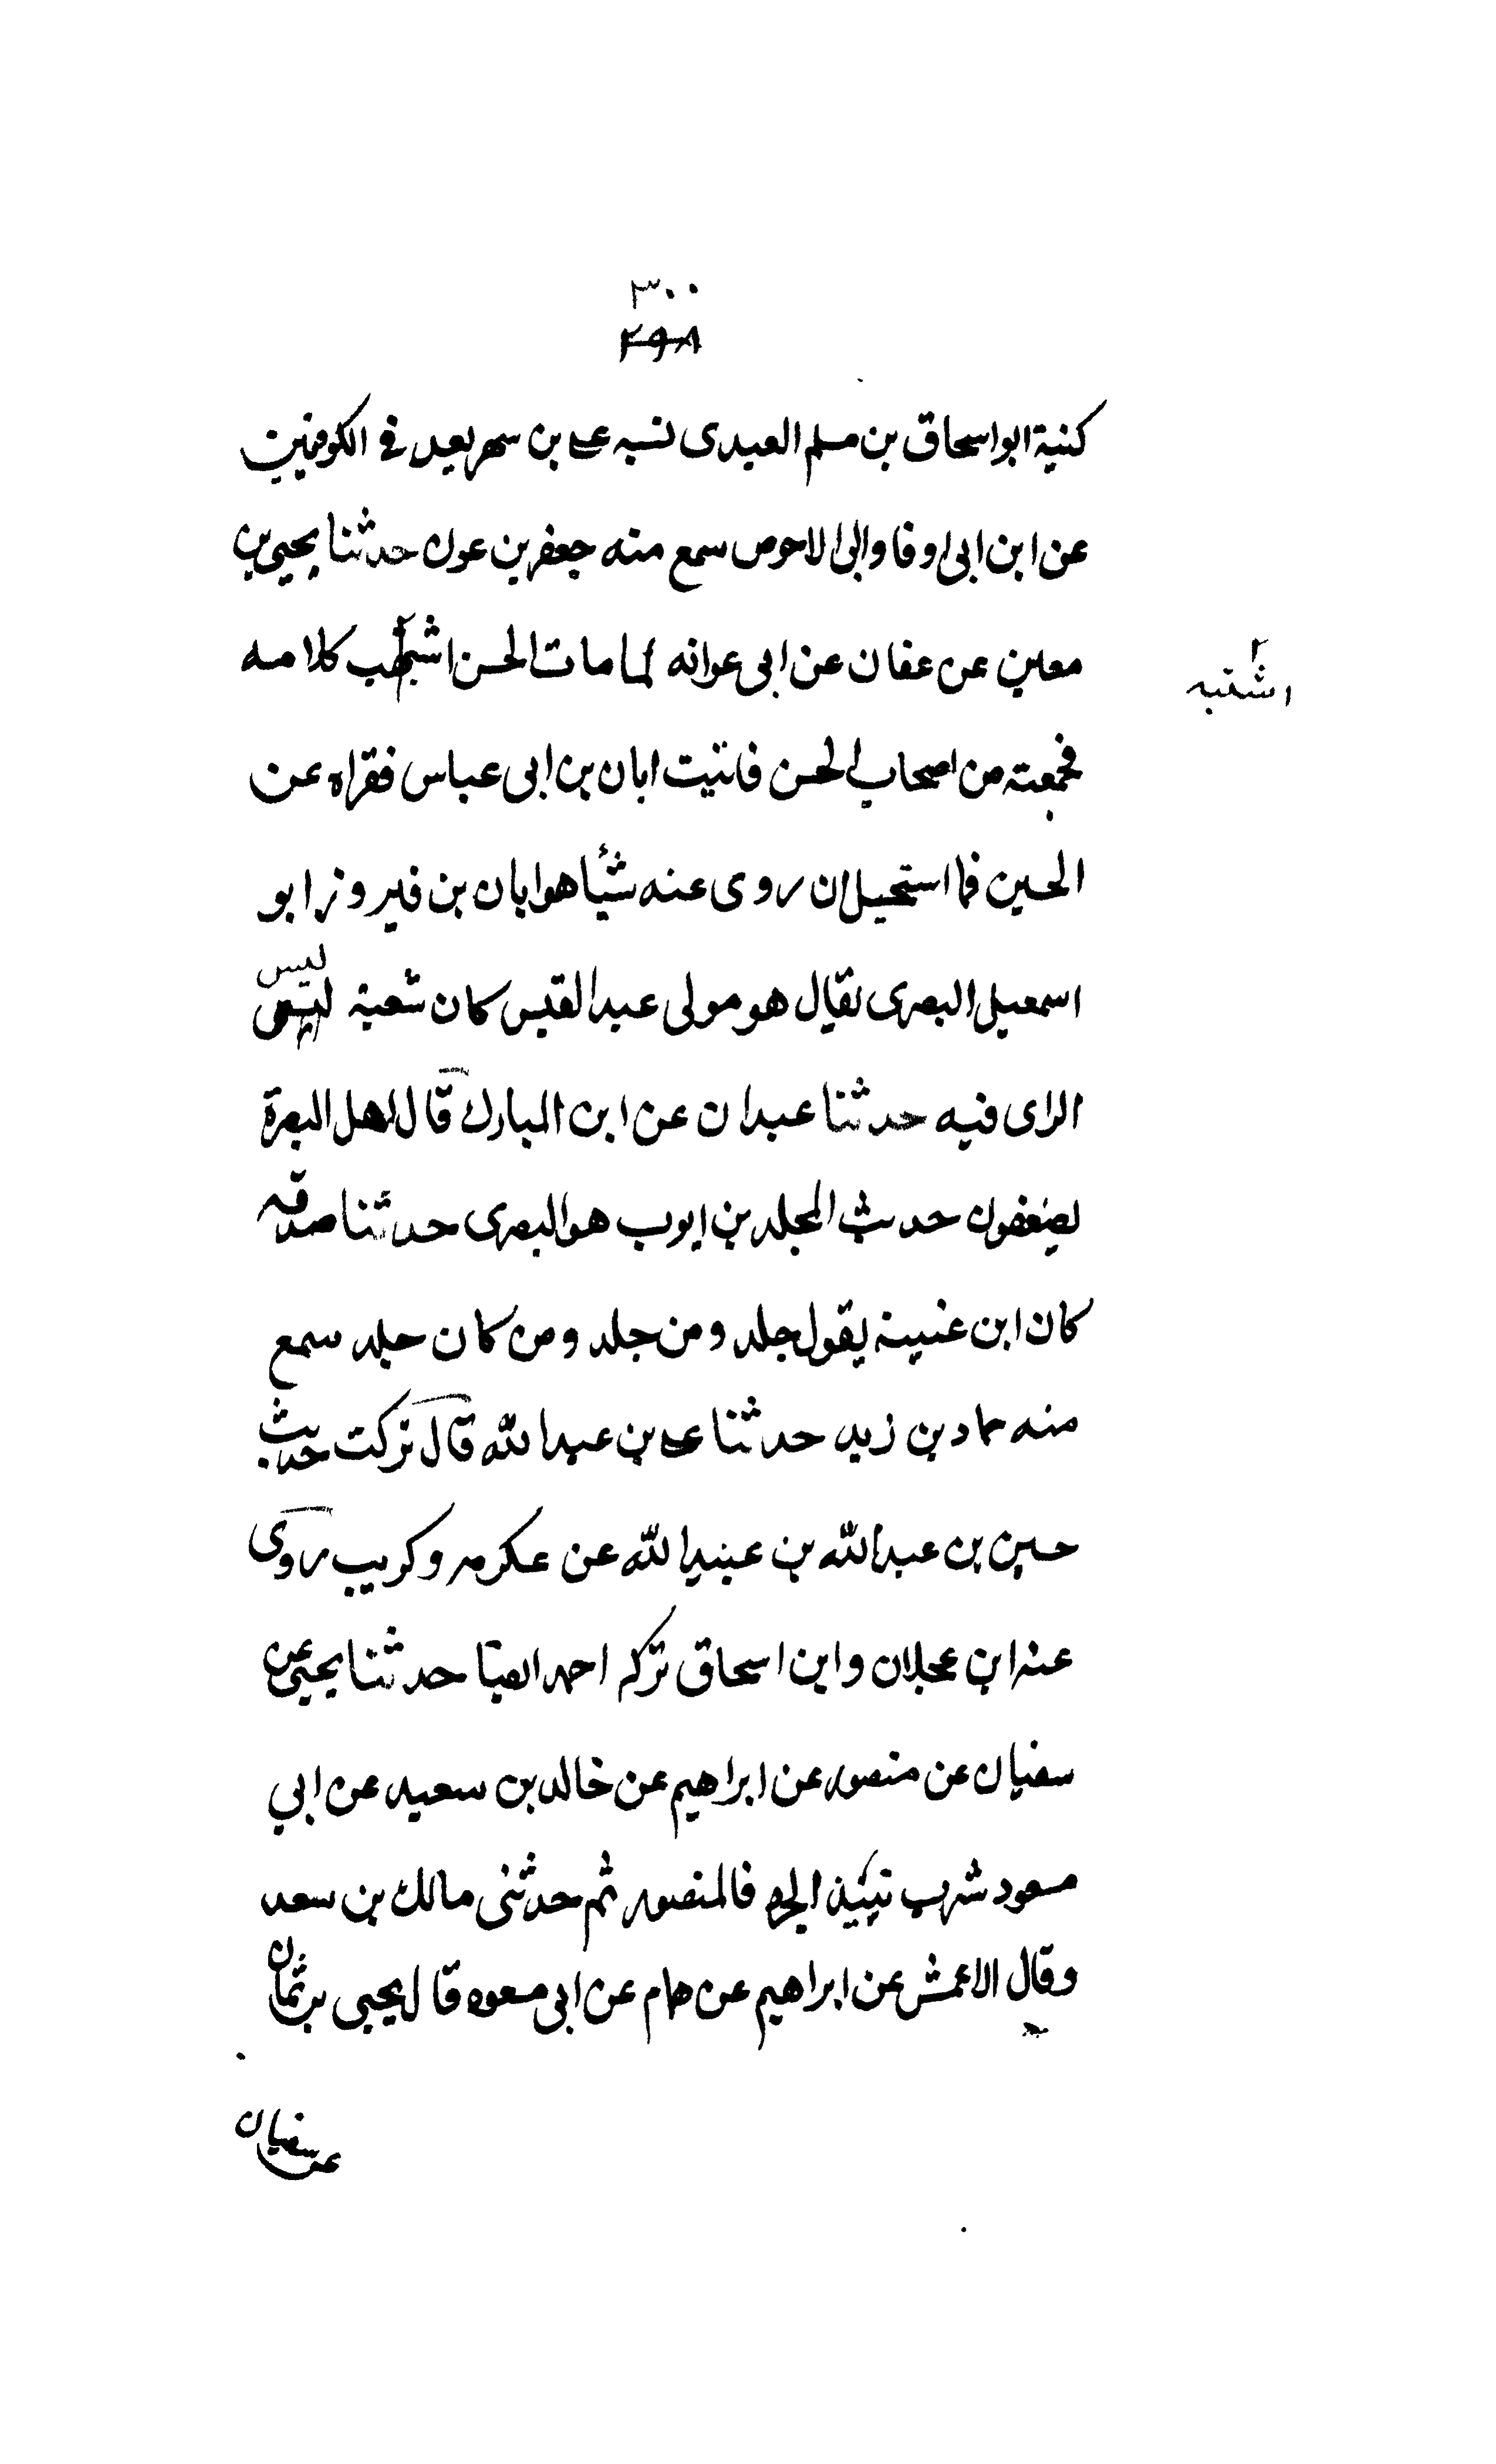 ٣٠٠
٢٩٨
كنية ابو اسحاق بن مسلم العبدى نسبه على بن مسهر يعد فى الكوفيين
عن ابن ابى اوفا وابى الاحوص سمع منه جعفر بن عون حدثنا يحيى بن
معين عن عفان عن ابى عوانه لما مات الحسن اشتهيت كلامه
اشتبه
فجمعته من اصحاب الحسن فاتيت ابان بن ابى عياش فقراه عن
الحسن فما استحيل ان روى عنه شئًا هو ابان بن فيروز ابو
اسمعيل البصرى يقال هو مولى عبد القيس كان شعبة ليس
الراى فيه حدثنا عبدان عن ابن المبارك قال اهل البصرة
يضعفون حديث الجلد بن ايوب هو البصرى حدثنا صدقه
كان ابن عنيينة يقول جلد ومن جلد ومن كان جلد سمع
منه حماد بن زيد حدثنا على بن عبد الله قال تركت حديث
حسين بن عبد الله بن عبيد الله عن عكرمه وكريب روى
عنه ابن عجلان وابن اسحاق تركه احمد ايضا حدثنا يحيى عن
سفيان عن منصور عن ابراهيم عن خالد بن سعيد عن ابي
مسعود شرب نبيذ الجر قال منصور ثم حدثنى مالك بن سعد
وقال الاعمش عن ابراهيم عن همام عن ابى مسعود قال يحيى بن ثمان
عن سفيان